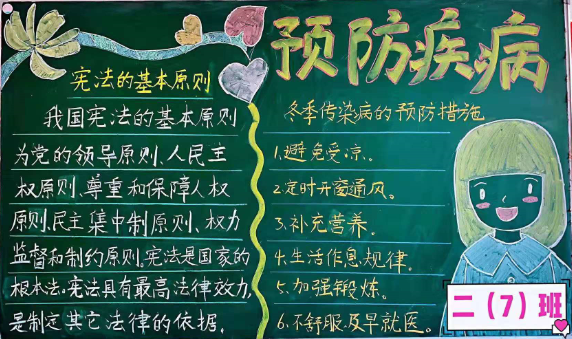 宪法的基本原则
我国宪法的基本原则
为党的领导原则、人民主
权原则、尊重和保障人权
原则、民主集中制原则、权力
监督和制约原则。宪法是国家的
根本法。宪法具有最高法律效力,
是制定其它法律的依据.
预防疾病
冬季传染病的预防措施
1.避免受凉。
2.定时开窗通风。
3.补充营养.
4.生活作息规律.
5.加强锻炼。
6.不舒服及早就医。
二（7）班